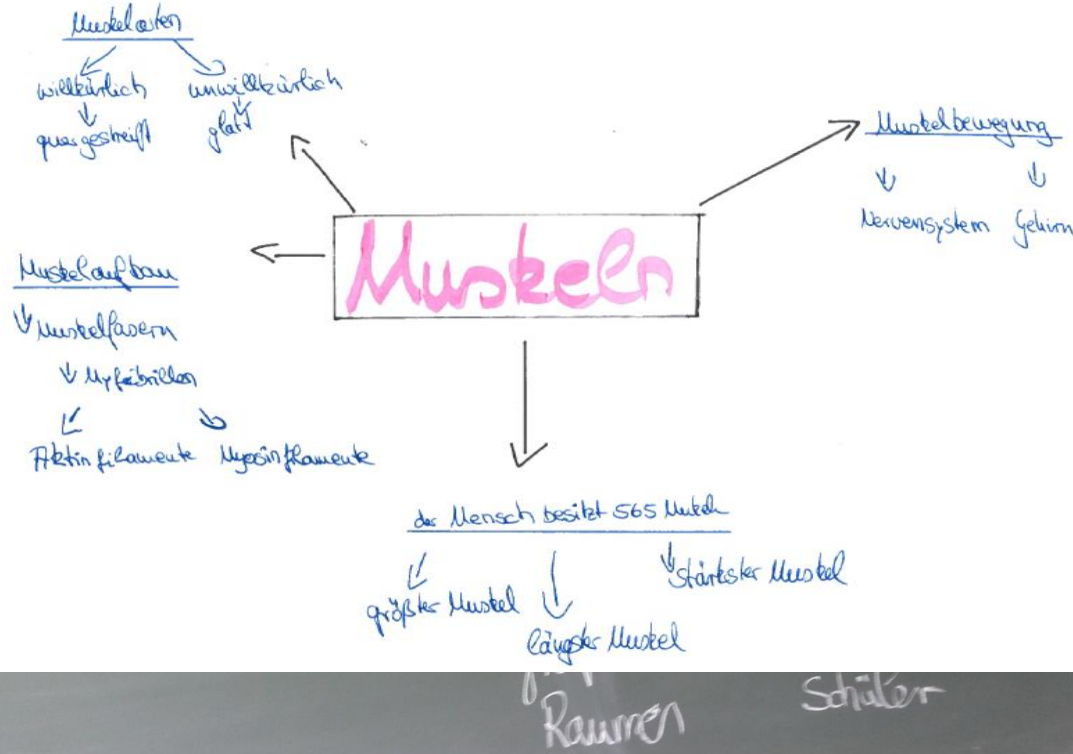 Muskelarten
willkürlich unwillkürlich
quergestreift glatt
Muskelbewegung
Nervensystem Gehirn
Muskeln
Muskelaufbau
Muskelfasern
Myfibrillen
Aktinfilamente Myosinfilamente
der Mensch besitzt 565 Muskeln
größter Muskel
längster Muskel
stärkster Muskel
Räumen
Schüler